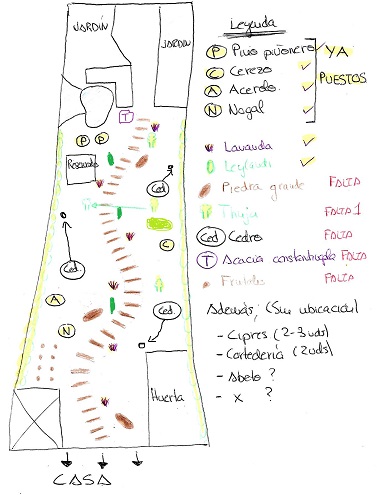 JARDÍN
JARDIN
T
P P
Reservado
Ced
Ced
C
A
N
Ced
Huerta
CASA
Leyenda
P Pino piñonero YA
C Cerezo PUESTOS
A Acerolo
N Nogal
Lavanda
Leylandi
Piedra grande FALTA
Thuja FALTA 1
Ced Cedro FALTA
T Acacia constantinopla FALTA
Frutales FALTA
Además; (Sin ubicación)
- Cipres (2-3 uds)
- Cortadería (2 uds)
- Abeto ?
- x ?